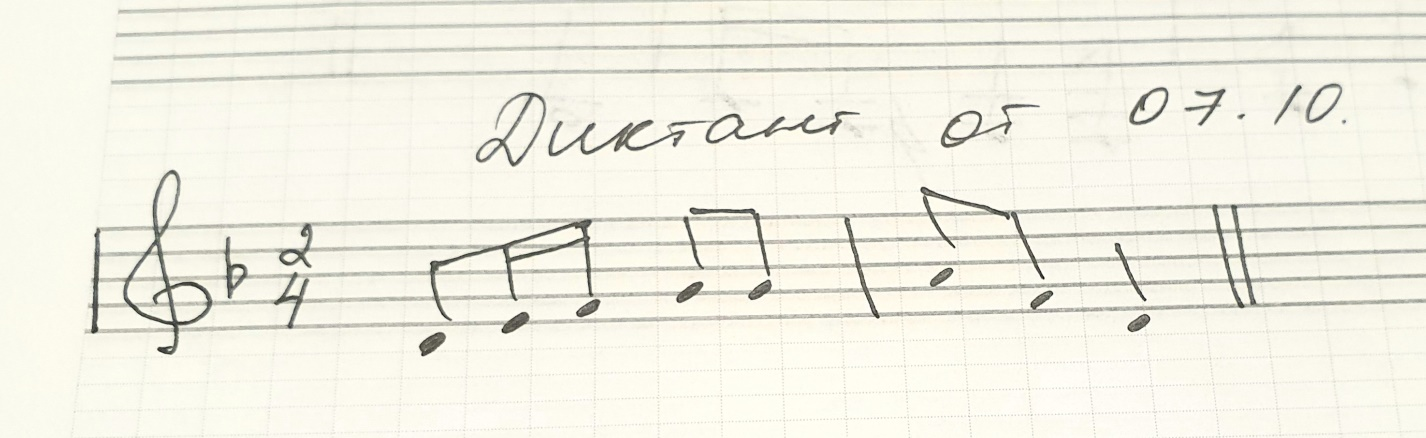 Диктант от 07.10.
2
4